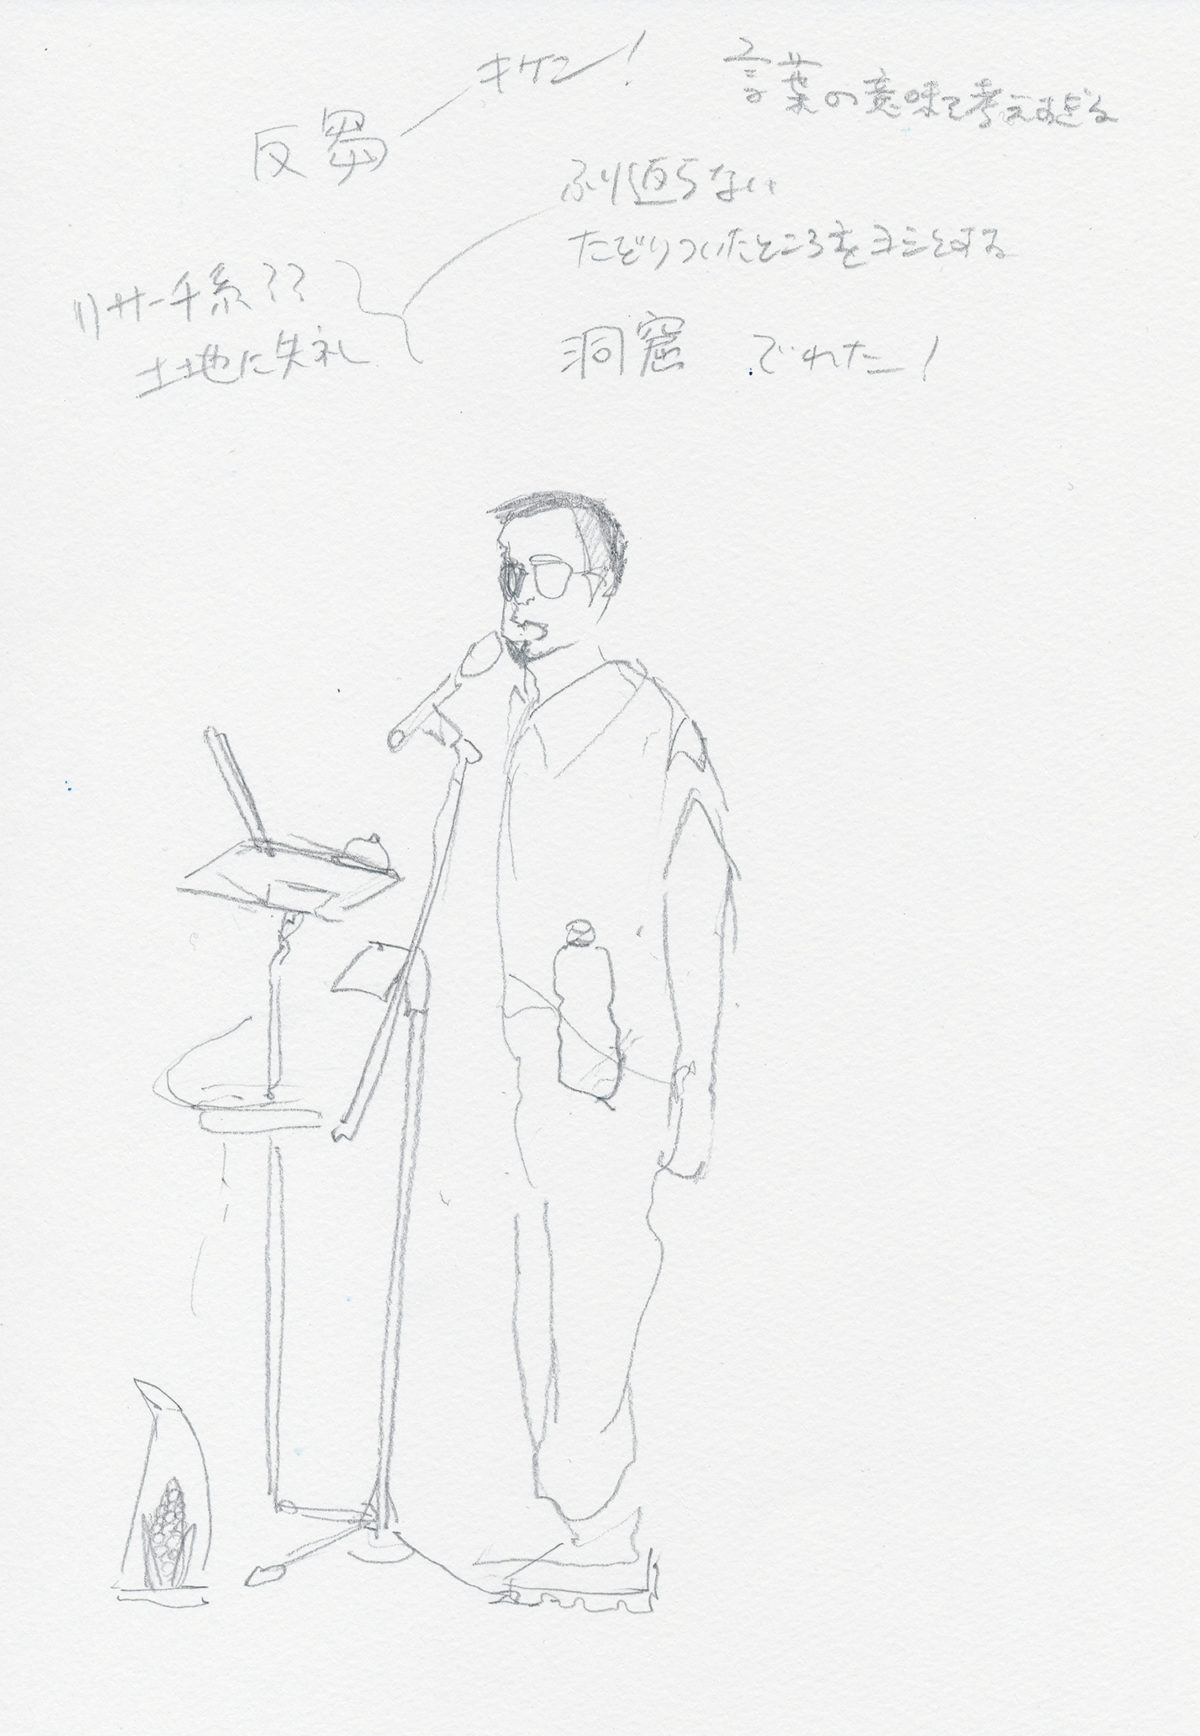 キケン!
言葉の意味を考えすぎる
反芻
ふり返らない
たどりついたところをヨシとする
リサーチ系??
土地に失礼
洞窟 でれた!